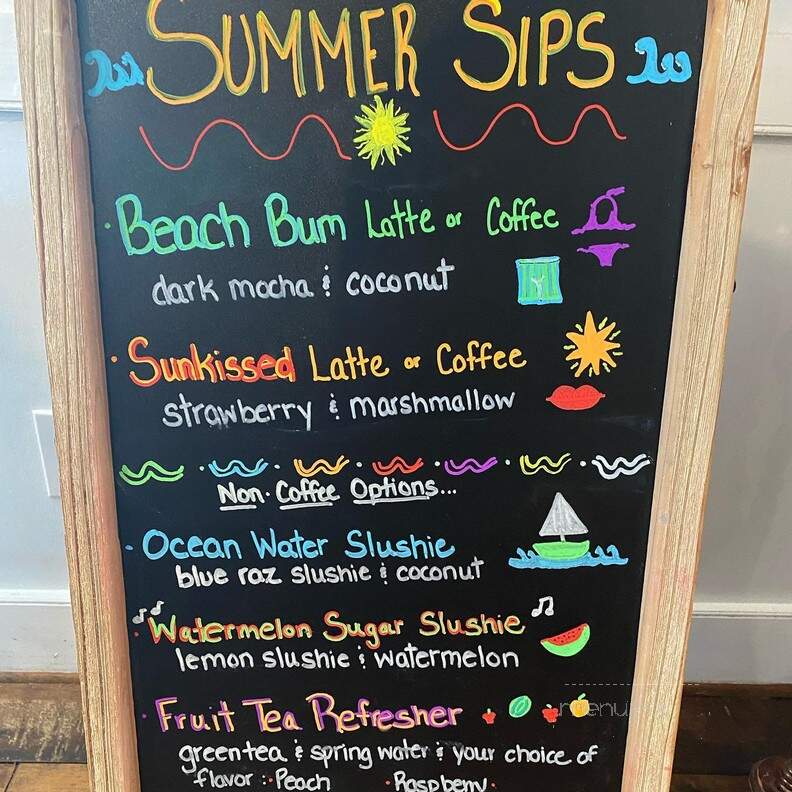 SUMMER SIPS
Beach Bum Latte or Coffee
dark mocha & coconut
Sunkissed Latte or Coffee
strawberry & marshmallow
Non-Coffee Options...
Ocean Water Slushie
blue raz slushie & coconut
Watermelon Sugar Slushie
lemon slushie & watermelon
Fruit Tea Refresher
menu
green tea & spring water & your choice of
flavor: · Peach · Raspberry